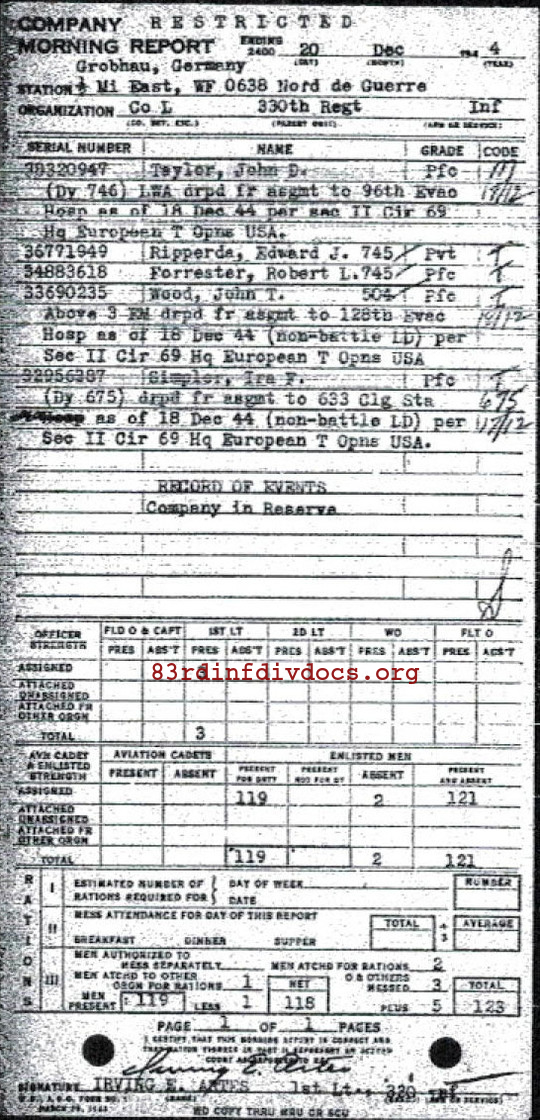 COMPANY RESTRICTED
MORNING REPORT ENDING 2400 20 Dec 194 4
(DAY) (MONTH) (YEAR)
Grobhau, Germany
STATION ½ Mi East, WF 0638 Nord de Guerre
ORGANIZATION Co L 330th Regt Inf
(CO. DET. ETC.) (PARENT UNIT) (ARM OR SERVICE)
SERIAL NUMBER NAME GRADE CODE
39320947 Taylor, John D. Pfc
(Dy 746) LWA drpd fr asgmt to 96th Evac 18/12
Hosp as of 18 Dec 44 per sec II Cir 69
Hq European T Opns USA.
36771949 Ripperda, Edward J. 745 Pvt
34883618 Forrester, Robert L. 745 Pfc
33690235 Wood, John T. 504 Pfc
Above 3 EM drpd fr asgmt to 128th Evac
Hosp as of 18 Dec 44 (non-battle LD) per
Sec II Cir 69 Hq European T Opns USA
32956387 Simpler, Ira F. Pfc
(Dy 675) drpd fr asgmt to 633 Clg Sta 675
as of 18 Dec 44 (non-battle LD) per 17/12
Sec II Cir 69 Hq European T Opns USA.
RECORD OF EVENTS
Company in Reserve
OFFICER STRENGTH FLD O & CAPT 1ST LT 2D LT WO FLT O
PRES ABS'T PRES ABS'T PRES ABS'T PRES ABS'T PRES ABS'T
ASSIGNED 3
83rdinfdivdocs.org
ATTACHED UNASSIGNED
ATTACHED FR OTHER ORGN
TOTAL 3
AVN CADET & ENLISTED STRENGTH AVIATION CADETS ENLISTED MEN
PRESENT ABSENT PRESENT FOR DUTY PRESENT NOT FOR DY ABSENT PRESENT AND ABSENT
ASSIGNED 119 2 121
ATTACHED UNASSIGNED
ATTACHED FR OTHER ORGN
TOTAL 119 2 121
RATIONS
I ESTIMATED NUMBER OF RATIONS REQUIRED FOR DAY OF WEEK DATE NUMBER
II MESS ATTENDANCE FOR DAY OF THIS REPORT TOTAL ÷ 3 AVERAGE
BREAKFAST DINNER SUPPER
III MEN AUTHORIZED TO MESS SEPARATELY MEN ATCHD FOR RATIONS 2
MEN ATCHD TO OTHER ORGN FOR RATIONS 1 NET O & OTHERS MESSED 3 TOTAL
MEN PRESENT 119 LESS 1 118 PLUS 5 123
PAGE 1 OF 1 PAGES
I CERTIFY THAT THIS MORNING REPORT IS CORRECT AND
SIGNATURE IRVING E. ARTES 1st Lt., 330 Inf
(NAME) (ARM OR SERVICE)